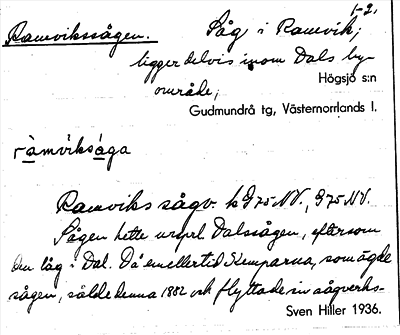 1-2.
Ramvikssågen. Såg i Ramvik;
ligger delvis inom Dals by-
område;
Högsjö s:n
Gudmundrå tg, Västernorrlands l.
ràmviksága
Ramviks sågv. kG75NV., G75NV.
Sågen hette urspr. Dalssågen, eftersom
den låg i Dal. Då emellertid Kemparna, som ägde
sågen, sålde denna 1882 och flyttade in sågverks-
Sven Hiller 1936.